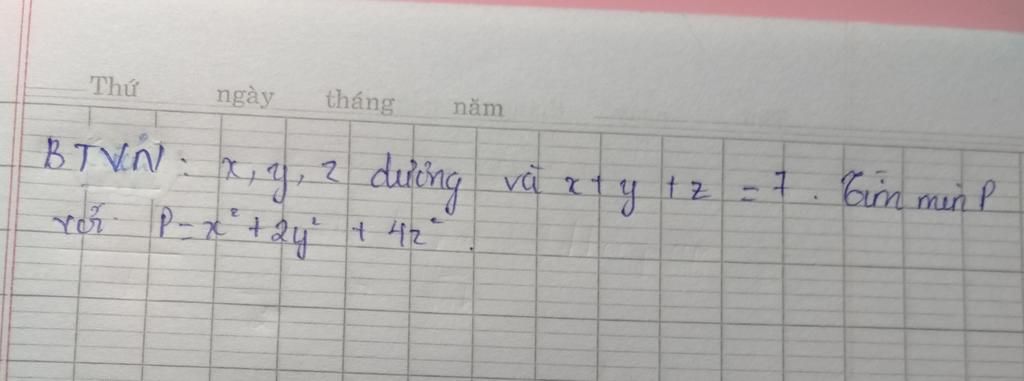 Thứ ngày tháng năm
BTVN: x, y, z dương và x + y + z = 7. Tìm min P
với P = x² + 2y² + 4z².